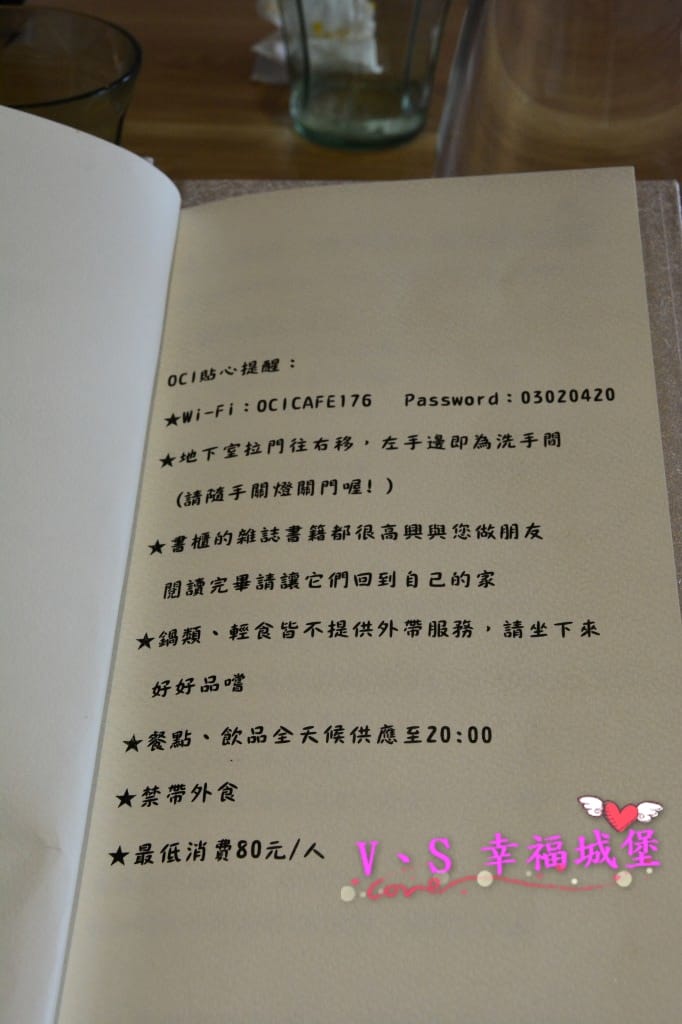 OCI貼心提醒：
★Wi-Fi：OCICAFE176 Password：03020420
★地下室拉門往右移，左手邊即為洗手間
(請隨手關燈關門喔！)
★書櫃的雜誌書籍都很高興與您做朋友
閱讀完畢請讓它們回到自己的家
★鍋類、輕食皆不提供外帶服務，請坐下來
好好品嚐
★餐點、飲品全天候供應至20:00
★禁帶外食
★最低消費80元/人
V、S 幸福城堡
Love